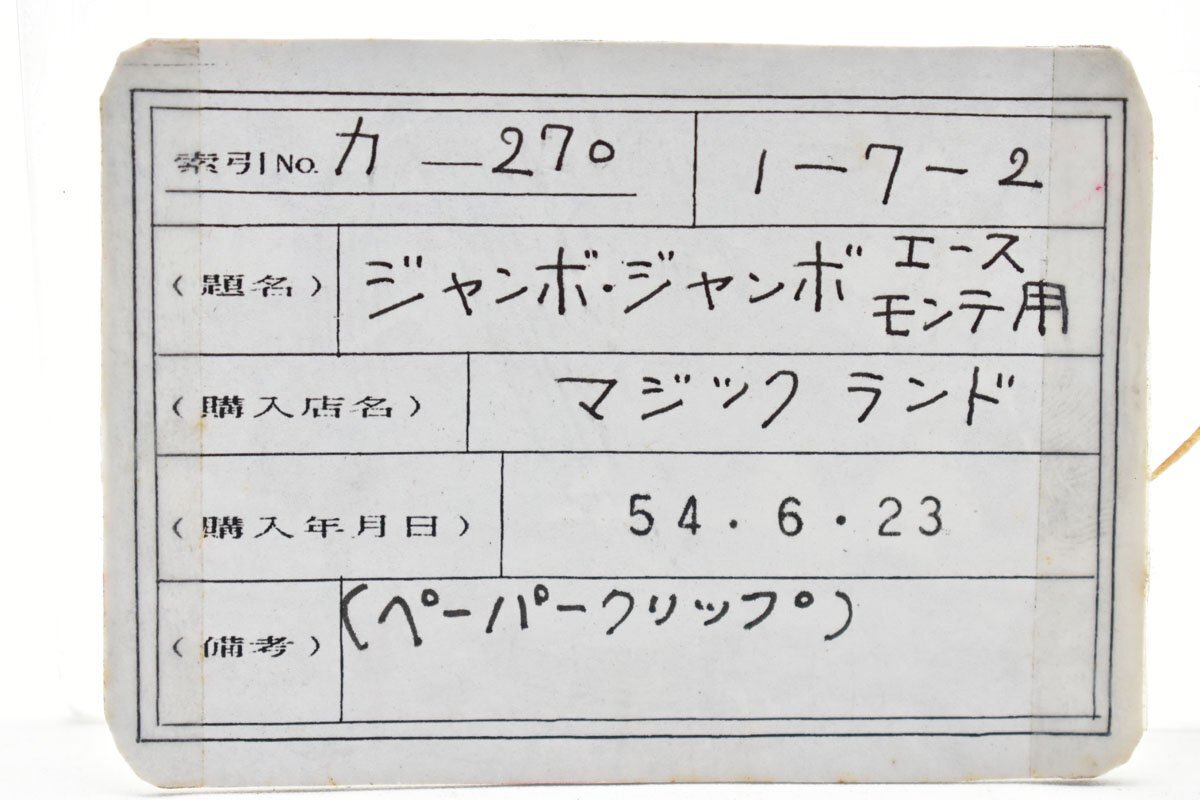 索引No. カ—270
1-7-2
(題名) ジャンボ・ジャンボ エース
モンテ用
(購入店名) マジック ランド
(購入年月日) 54.6.23
(備考) (ペーパークリップ)